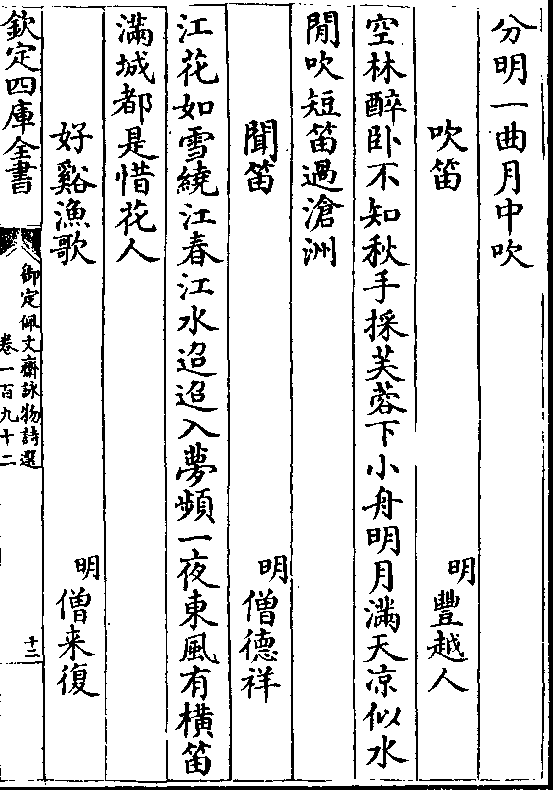 分明一曲月中吹
吹笛
明豐越人
空林醉卧不知秋手採芙蓉下小舟明月滿天凉似水
閒吹短笛過滄洲
聞笛
明僧德祥
江花如雪繞江春江水迢迢入夢頻一夜東風有橫笛
滿城都是惜花人
好谿漁歌
明僧来復
欽定四庫全書
御定佩文齋詠物詩選
卷一百九十二
十二